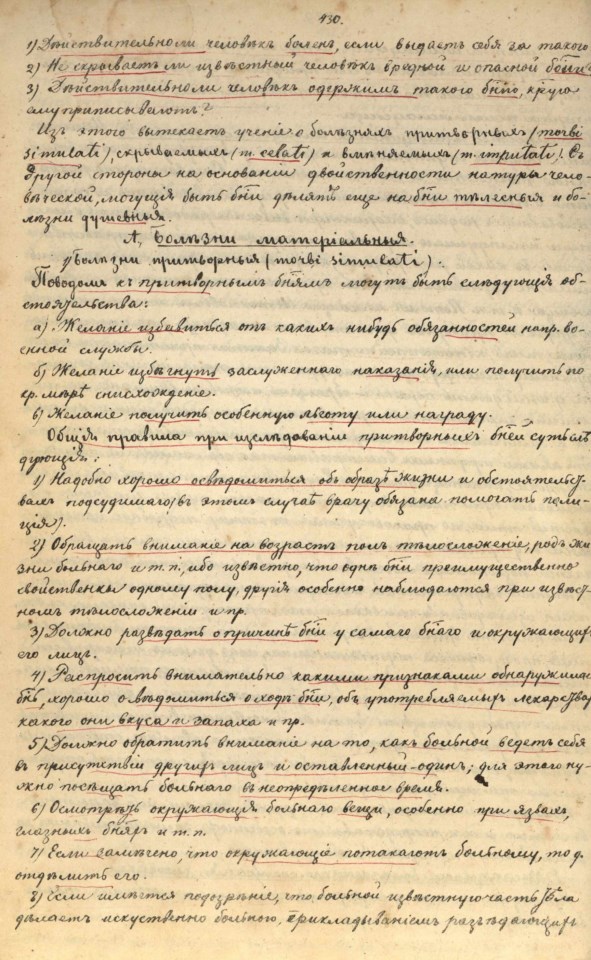 430.
1) Дѣйствительно ли человѣкъ боленъ, если выдаетъ себя за такого
2) Не скрываетъ ли извѣстный человѣкъ вредной и опасной бѣни
3) Дѣйствительно ли человѣкъ одержимъ такого бѣнію, кſую
ему приписываютъ?
Изъ этого вытекаетъ ученіе о болѣзняхъ притворныхъ (morbi
simulati), скрываемыхъ (m. celati) и вмѣняемыхъ (m. imputati). Съ
другой стороны на основаніи двойственности натуры чело-
вѣческой, могущія быть бѣни дѣлятъ еще на бѣни тѣлесныя и бо-
лѣзни душевныя.
А, Болѣзни матеріальныя.
1) Болѣзни притворныя (morbi simulati).
Поводомъ къ притворнымъ бѣнямъ могутъ быть слѣдующія об-
стоятельства:
а) Желаніе избавиться отъ какихъ нибудь обязанностей напр. во-
енной службы.
б) Желаніе избѣгнуть заслуженнаго наказанія, или получить по
кр. мѣрѣ снисхожденіе.
в) Желаніе получить особенную льготу или награду.
Общія правила при изслѣдованіи притворныхъ бѣней суть слѣ
дующія:
1) Надобно хорошо освѣдомиться объ образѣ жизни и обстоятельст-
вахъ подсудимаго (въ этомъ случаѣ врачу обязана помогать поли-
ція).
2) Обращать вниманіе на возрастъ полъ тѣлосложеніе, родъ жи
зни больнаго и т. п. ибо извѣстно, что однѣ бѣни преимущественно
свойственны одному полу, другія особенно наблюдаются при извѣст-
номъ тѣлосложеніи и пр.
3) Должно развѣдать о причинѣ бѣни у самаго бѣнаго и окружающихъ
его лицъ.
4) Распросить внимательно какими признаками обнаружилась
бѣнь, хорошо освѣдомиться о ходѣ бѣни, объ употребляемыхъ лекарствахъ
какого они вкуса и запаха и пр.
5) Должно обратить вниманіе на то, какъ больной ведетъ себя
въ присутствіи другихъ лицъ и оставленный одинъ; для этого ну-
жно посѣщать больнаго въ неопредѣленное время.
6) Осмотрѣть окружающія больнаго вещи, особенно при язвахъ,
глазныхъ бѣняхъ и т. п.
7) Если замѣчено, что окружающіе потакаютъ больному, то д.
отдѣлить его.
8) Если имѣется подозрѣніе, что больной извѣстную часть тѣла
дѣлаетъ искуственно больною, прикладываніемъ разъѣдающихъ